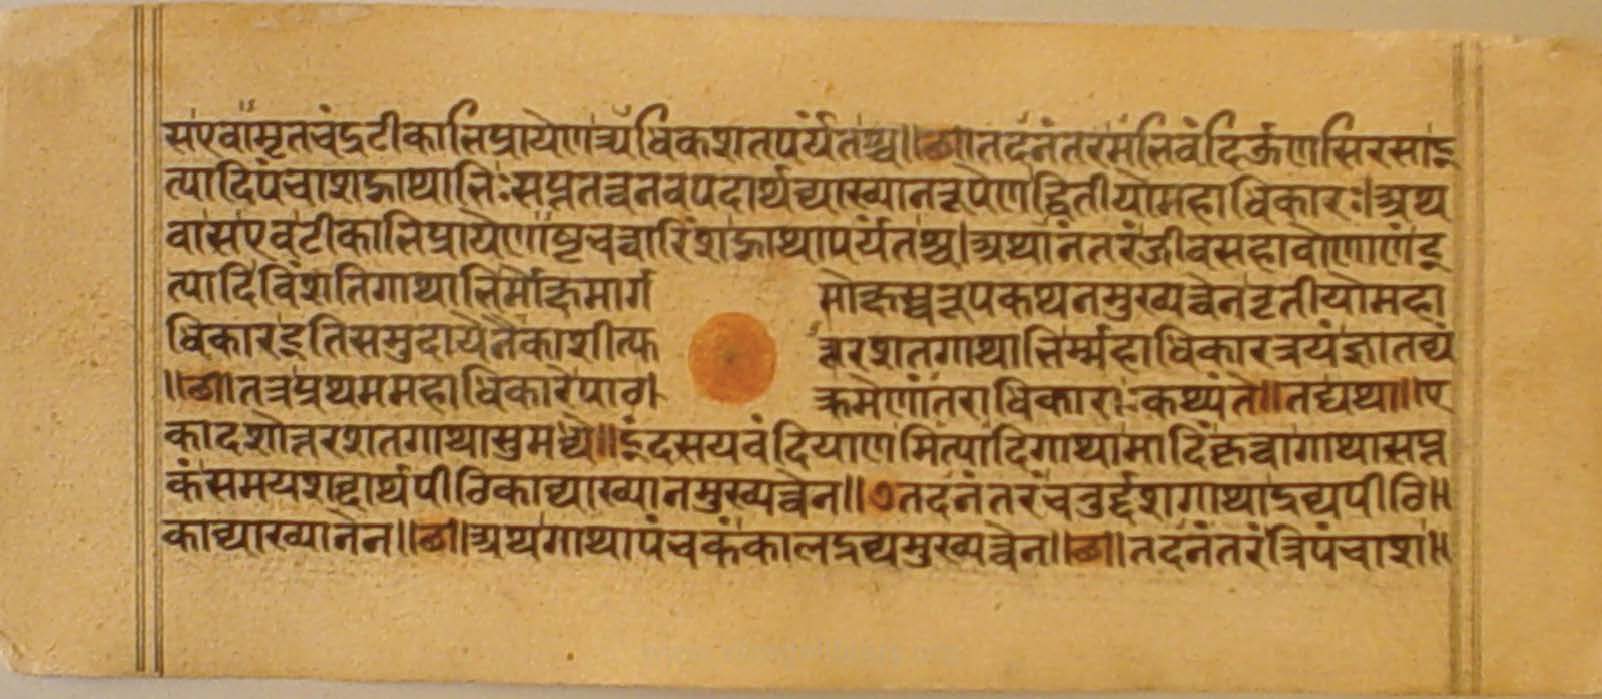 स एवामृतचंद्रटीकाभिप्रायेण त्र्यधिकशतपर्यंतश्च ॥ छ ॥ तदनंतरं अभिवंदिऊण सिरसा इ
त्यादि पंचाशद्गाथाभिः सप्ततत्त्वनवपदार्थव्याख्यानरूपेण द्वितीयो महाधिकारः । अथ
वा स एव टीकाभिप्रायेणाष्टचत्वारिंशद्गाथापर्यंतश्च । अथानंतरं जीवसहावो णाणं इ
त्यादि विंशतिगाथाभिर्मोक्षमार्ग मोक्षस्वरूपकथनमुख्यत्वेन तृतीयो महा
धिकार इति समुदायेनैकाशीत्यु त्तरशतगाथाभिर्महाधिकारत्रयं ज्ञातव्यं
॥ छ ॥ तत्र प्रथममहाधिकारे पाठ क्रमेणांतराधिकाराः कथ्यंते ॥ तद्यथा ॥ ए
कादशोत्तरशतगाथासु मध्ये ॥ इंदसयवंदियाणमित्यादि गाथामादिं कृत्वा गाथासप्त
कं समयशब्दार्थपीठिकाव्याख्यानमुख्यत्वेन ॥ ७ तदनंतरं चतुर्द्दशगाथा द्रव्यपीठि
काव्याख्यानेन ॥ छ ॥ अथ गाथापंचकं कालद्रव्यमुख्यत्वेन ॥ छ ॥ तदनंतरं त्रिपंचाश